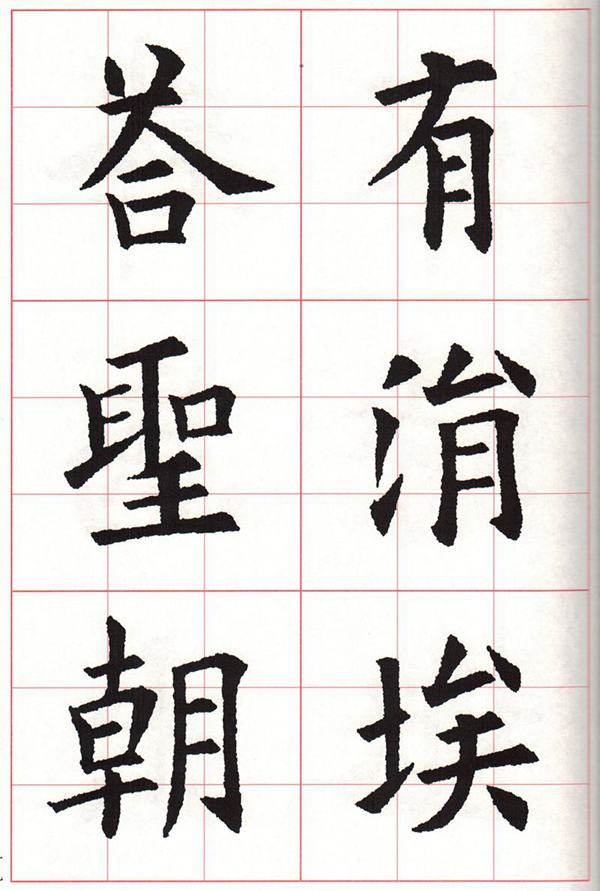 有涓埃
荅聖朝